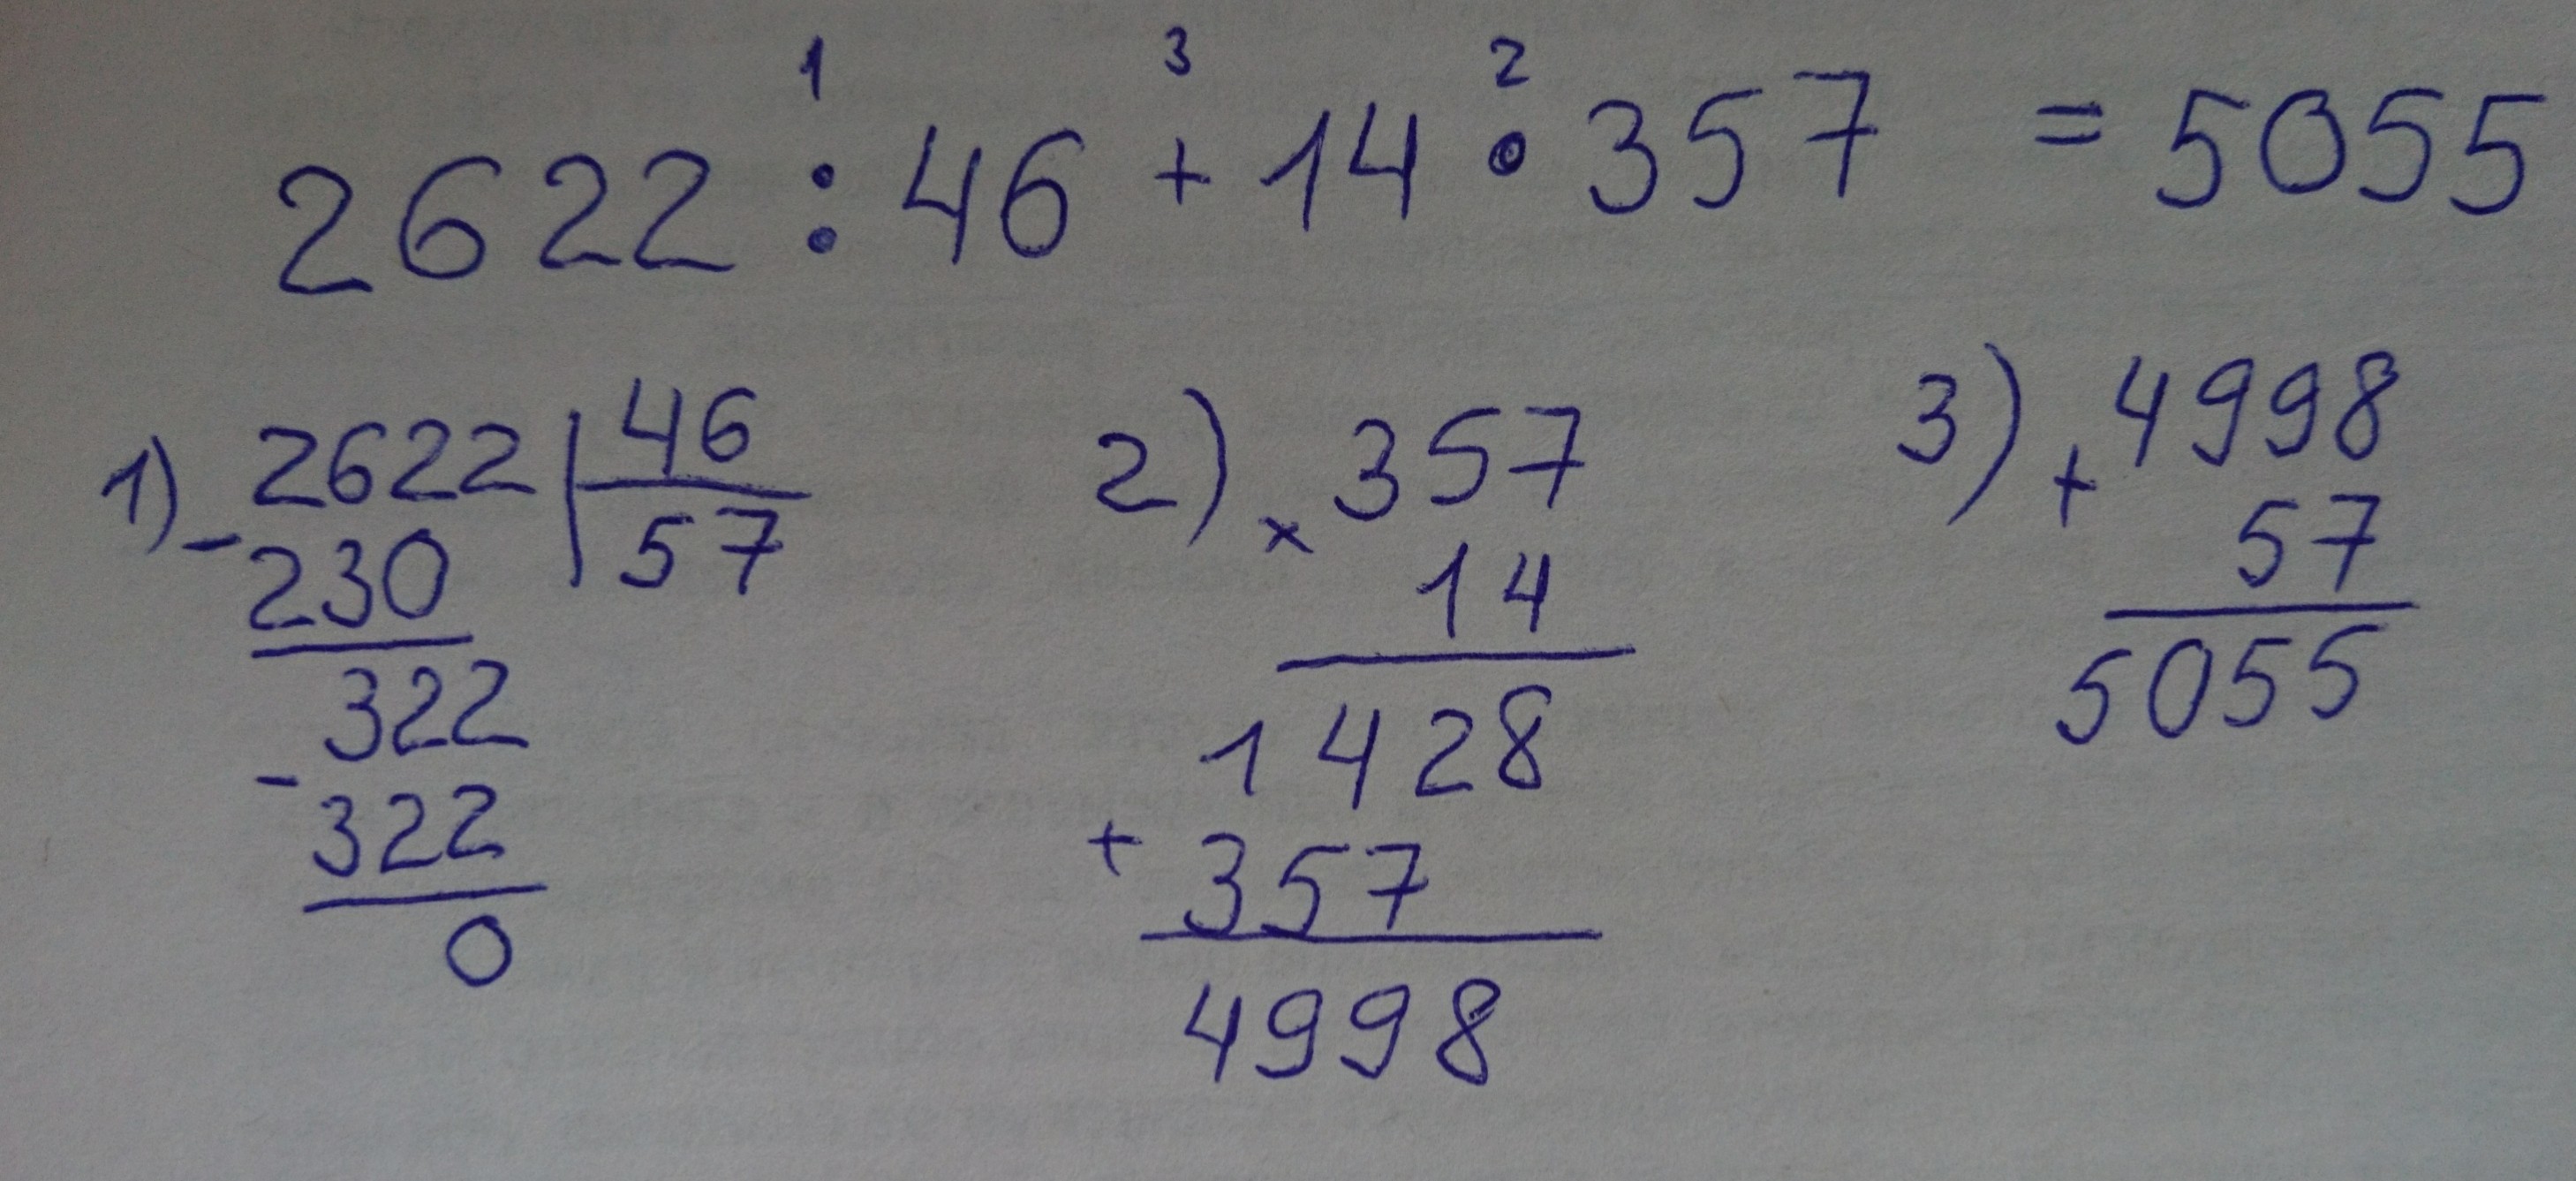 1 3 2
2622 : 46 + 14 • 357 = 5055
1) - 2622 | 46
230 57
322
- 322
0
2) × 357
14
1428
+ 357
4998
3) + 4998
57
5055